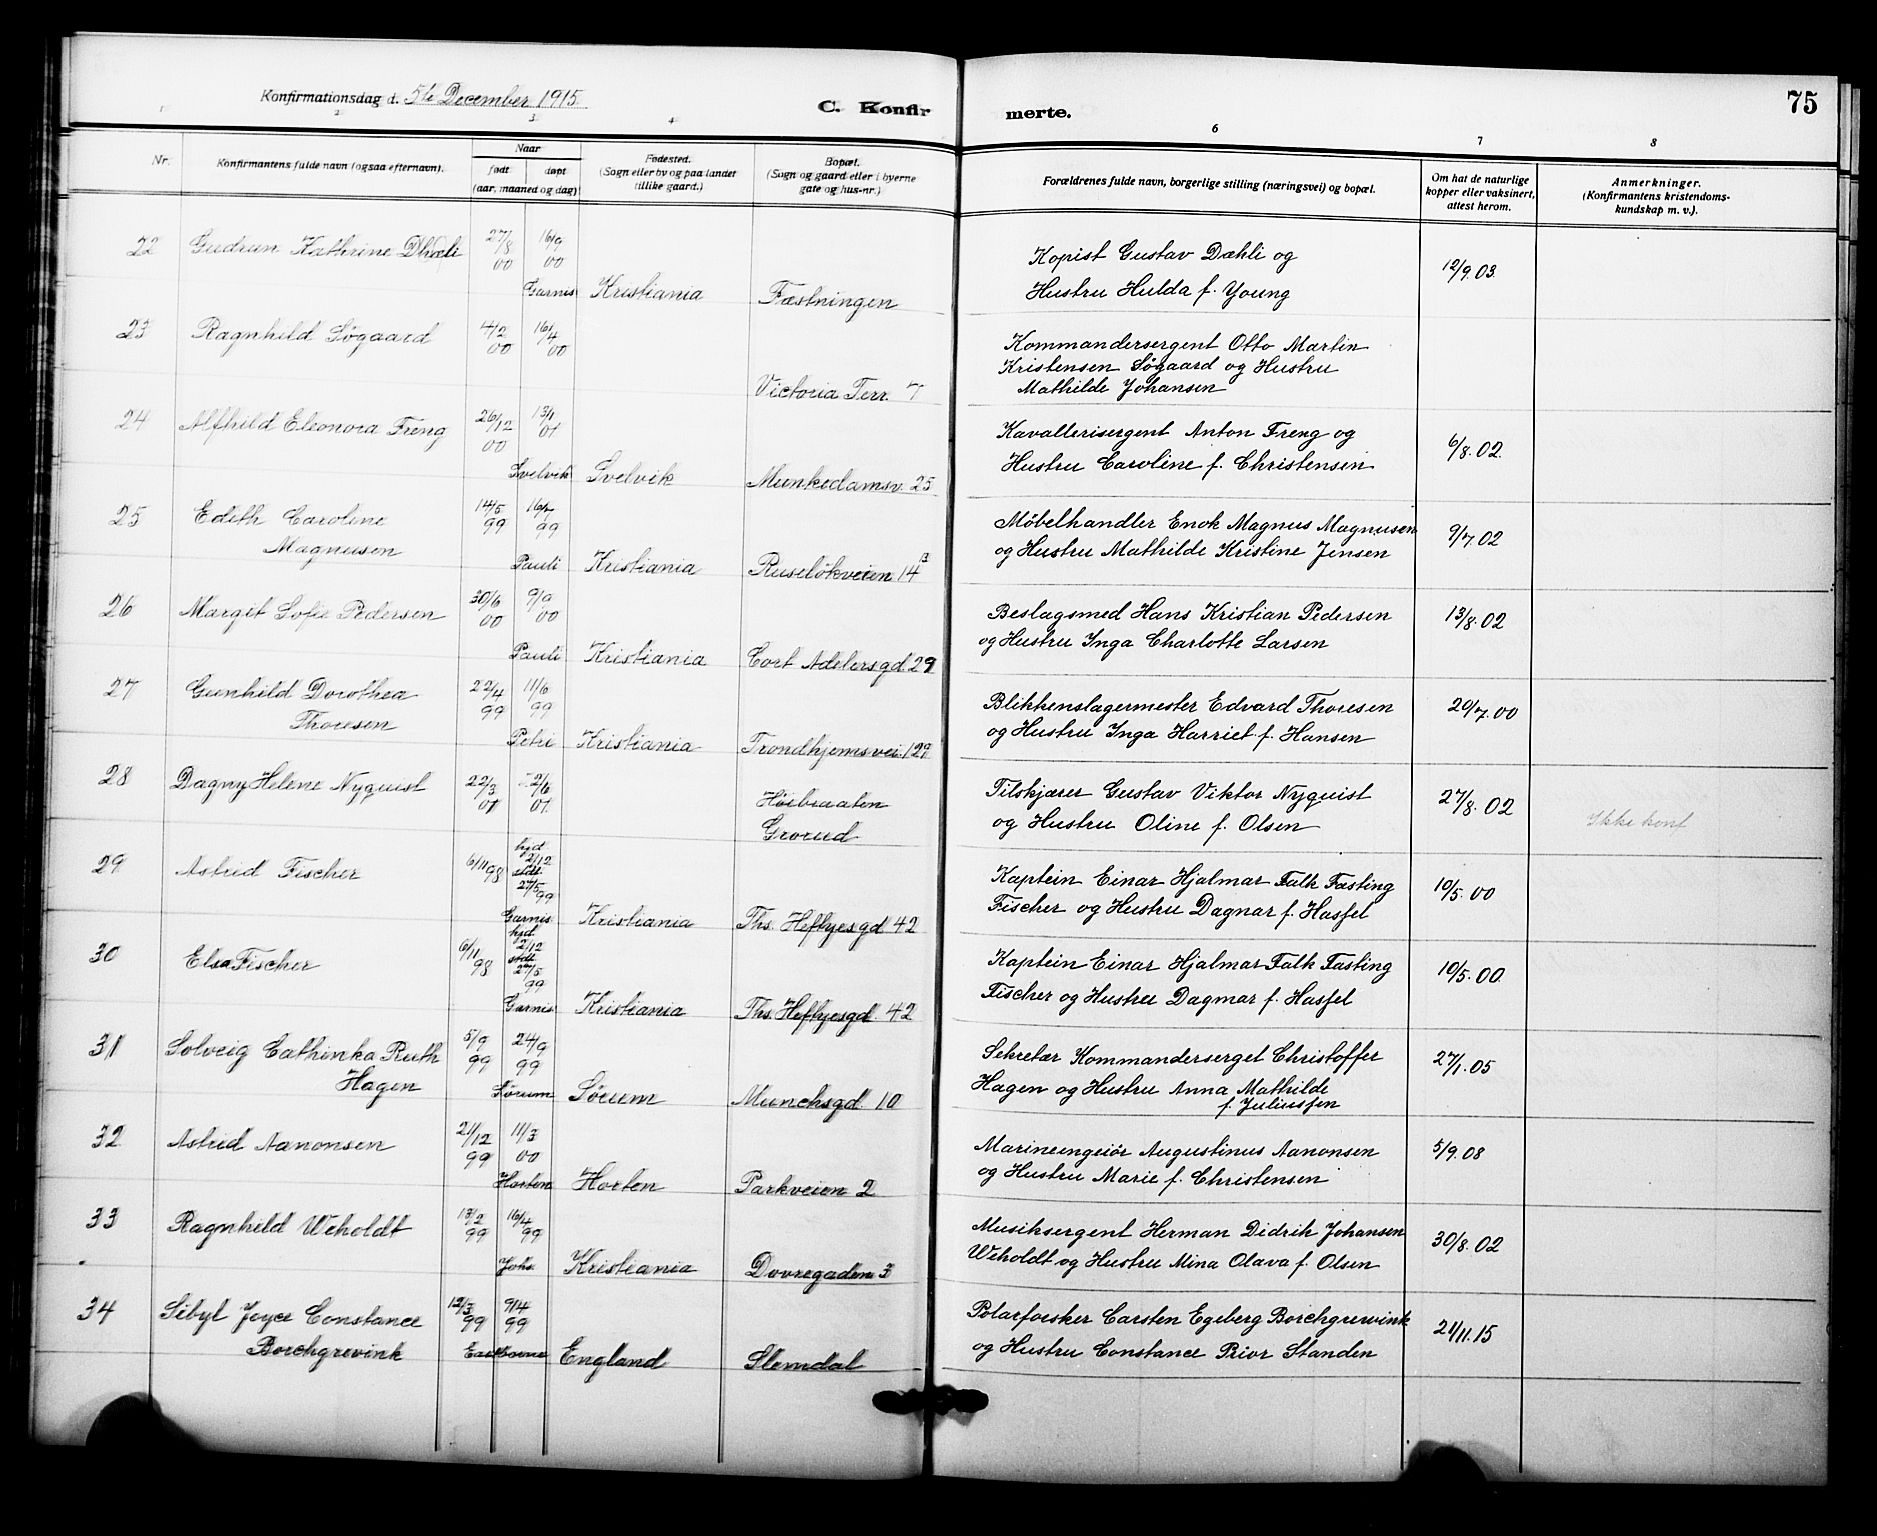 75
Konfirmationsdag d. 5te December 1915.
C. Konfir
merte.
2 3 4 6 7 8
Nr. Konfirmantens fulde navn (ogsaa efternavn). Naar
født døpt
(aar, maaned og dag)
Fødested.
(Sogn eller by og paa landet
tillike gaard.)
Bopæl.
(Sogn og gaard eller i byerne
gate og hus-nr.)
Forældrenes fulde navn, borgerlige stilling (næringsvei) og bopæl.
Om hat de naturlige
kopper eller vaksinert,
attest herom.
Anmerkninger.
(Konfirmantens kristendoms-
kundskap m. v.).
22 Gudrun Kathrine 27/8 00 16/9 00
Garnis Kristiania Fæstningen
Kopist Gustav Dæhli og
Hustru Hulda f. Young
12/9.03.
23 Ragnhild Søgaard 4/2 00 16/4 00
Victoria Terr. 7
Kommandersergent Otto Martin
Kristensen Søgaard og Hustru
Mathilde Johansen
24 Alfhild Eleonora Freng 26/12 00 13/1 01
Svelvik Svelvik Munkedamsv. 25
Kavallerisergent Anton Freng og
Hustru Caroline f. Christensen
6/8.02.
25 Edith Caroline 14/5 99 16/7 99
Magnusen
Pauli Kristiania Ruseløkveien 14 B
Møbelhandler Enok Magnus Magnusen
og Hustru Mathilde Kristine Jensen
9/7.02
26 Margit Sofie Pedersen 30/6 00 9/9 00
Pauli Kristiania Cort Adelersgd. 29
Beslagsmed Hans Kristian Pedersen
og Hustru Inga Charlotte Larsen
13/8.02
27 Gunhild Dorothea 22/4 99 11/6 99
Thoresen
Petri Kristiania Trondhjemsvei. 129
Blikkenslagermester Edvard Thoresen
og Hustru Inga Harriet f. Hansen
20/7.00
28 Dagny Helene Nyquist 22/3 01 2/6 01.
Høibraaten
Grorud
Tilskjærer Gustav Viktor Nyquist
og Hustru Oline f. Olsen
27/8.02
Ikke konf
29 Astrid Fischer 6/11 98 hjd. 2/12 stdt. 27/5 99
Garnis. Kristiania Ths. Heftyesgd 42
Kaptein Einar Hjalmar Falk Fasting
Fischer og Hustru Dagnar f. Hasfel
10/5.00
30 Elsa Fischer 6/11 98 hjd. 2/12 stdt. 27/5 99
Garnis. Kristiania Ths. Heftyesgd. 42
Kaptein Einar Hjalmar Falk Fasting
Fischer og Hustru Dagmar f. Hasfel
10/5.00.
31 Solveig Cathinka Ruth 5/9 99 24/9 99
Hagen
Sørum Sørum Munchsgd. 10
Sekretær Kommanderserget Christoffer
Hagen og Hustru Anna Mathilde
f. Juliussen
27/1.05
32 Astrid Aanonsen 21/12 99 11/3 00
Horten Horten Parkveien 2
Marineengeiør Augustinus Aanonsen
og Hustru Marie f. Christensen
5/9.08
33 Ragnhild Weholdt 13/2 99 16/4 99
Johs. Kristiania Dovregaden 3
Musiksergent Herman Didrik Johansen
Weholdt og Hustru Mina Olava f. Olsen
30/8.02
34 Sibyl Joyce Constance 12/3 99 9/4 99
Borchgrevink
England Slemdal
Polarforsker Carsten Egeberg Borchgrevink
og Hustru Constance Prior Standen
21/11.15